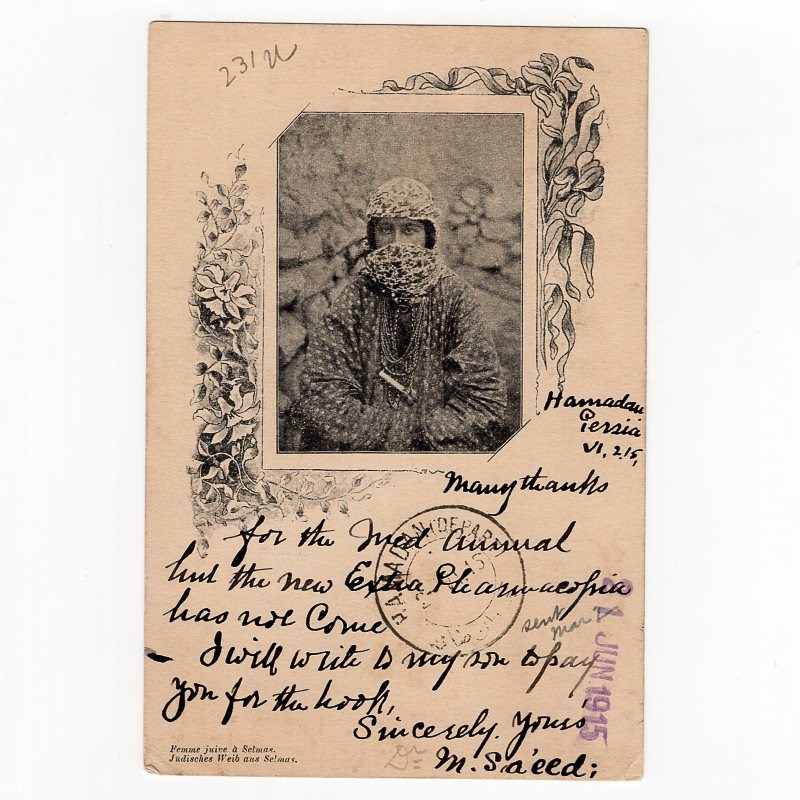 231
Hamadan
Persia
VI, 2.15,
Many thanks
for the Med Annual
but the new Extra Pharmacopia
has not Come
I will write to my son to pay
you for the book,
Sincerely Yours
Dr M. Sa'eed;
HAMADAN (DEPART
sent
Mar
21 JUN 1915
Femme juive à Selmas.
Jüdisches Weib aus Selmas.